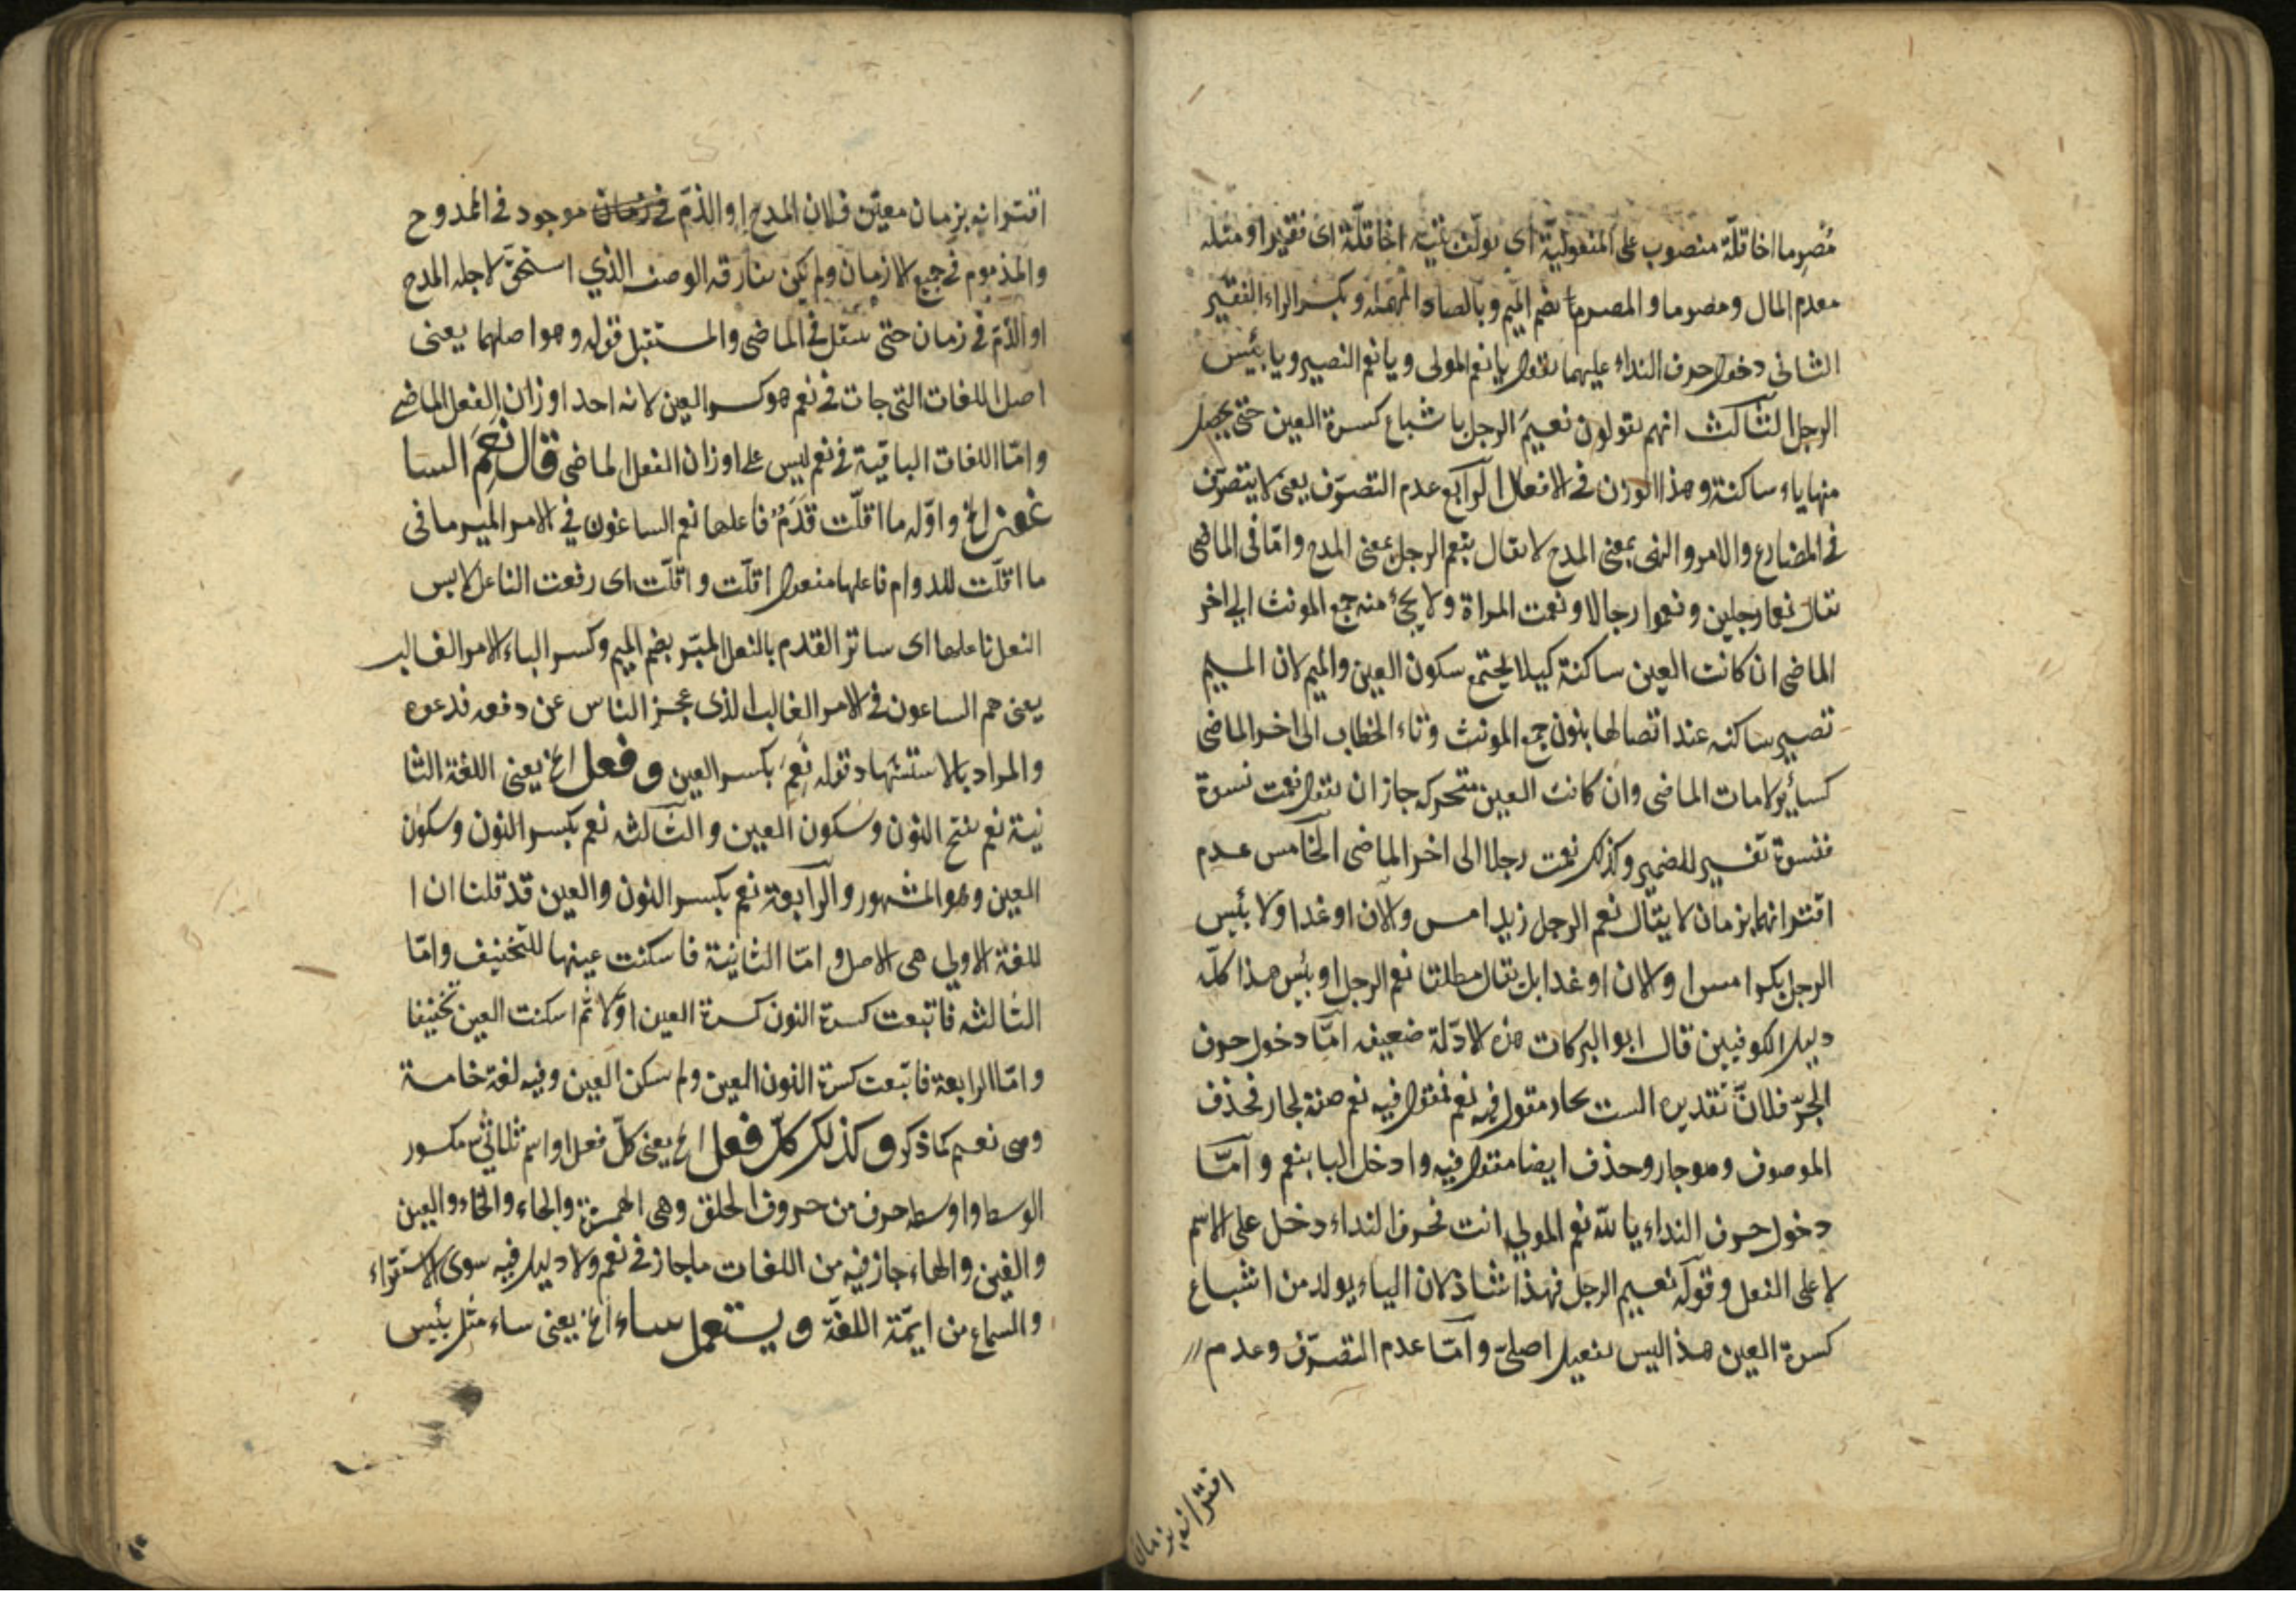 مُصرِما اخا قلّة منصوب على المفعوليّة اى يولّف بيته اخا قلّة اى فقيرا او مثله
معدم المال ومصرما و المصرما بضم الميم وبالصاد المهمله وبكسر الراء الفقير
الثانى دخول حرف النداء عليهما تقول يا نعم المولى ويا نعم النصير ويا بئيس
الرجل الثالث انهم يقولون نعيمَ الرجل باشباع كسرة العين حتى يحصل
منها ياء ساكنة وهذا الوزن فى الافعال الرابع عدم التصرّف يعنى لا يتصرّف
فى المضارع والامر والنهى بمعنى المدح لا يقال ينعم الرجل بمعنى المدح وامّا فى الماضى
تقال نعما رجلين ونعموا رجالا ونعمت المراة ولا يجئ منه جمع المونث الى اخر
الماضى ان كانت العين ساكنة كيلا يجتمع سكون العين والميم لان الميم
تصير ساكنه عند اتصالها بنون جمع المونث وتاء الخطاب الى اخر الماضى
كسائر لامات الماضى وان كانت العين متحركه جاز ان تقول نعمت نسوة
فنسوة تفسير للضمير وكذلك نعمت رجلا الى اخر الماضى الخامس عدم
اقترانهما بزمان لا يقال نعم الرجل زيد امس والان او غدا ولا بئيس
الرجل بكر امس او الان او غدا بل يقال مطلقا نعم الرجل او بئيس هذا كلّه
دليل الكوفيين قال ابو البركات هذه الادّلة ضعيفه امّا دخول حرف
الجرّ فلانّ تقديره الست بجار مقول فيه نعم فمقول فيه نعم صفة لجار فحذف
الموصوف وهو جار وحذف ايضا مقول فيه وادخل البا بنعم وامّا
دخول حرف النداء يا لله نعم المولى انت فحرف النداء دخل على الاسم
لا على الفعل وقوله نعيم الرجل فهذا شاذ لان الياء يولد من اشباع
كسرة العين هذا ليس بفعيل اصلىّ وامّا عدم التصرّف وعدم
اقترانه بزمان
اقترانه بزمان معيّن فلان المدح او الذمّ فى زمان موجود فى الممدوح
والمذموم فى جميع الازمان ولم يكن يفارقه الوصف الذي استحقّ لاجله المدح
او الذمّ فى زمان حتى ينقل فى الماضى والمستقبل قوله وهو اصلهما يعنى
اصل اللغات التى جات فى نعم هو كسر العين لانه احد اوزان الفعل الماضى
وامّا اللغات الباقية فى نعم ليس على اوزان الفعل الماضى قال نَعِمَ السا
عون الخ واوّله ما اقلّت قَدَمٌ فاعلها نعم الساعون في الامر المبر ما فى
ما اقلّت للدوام فاعلها مفعول اقلّت و اقلّت اى رفعت الفاعل لابس
النعل فاعلها اى ساتر القدم بالنعل المبّر بضم الميم وكسر الباء الامر الغالب
يعنى هم الساعون فى الامر الغالب الذى عجز الناس عن دفعه فدعوه
والمراد بالاستشهاد قوله نَعِمَ بكسر العين و فعل الخ يعنى اللغة الثا
نية نعم بفتح النون وسكون العين والثالثه نعم بكسر النون وسكون
العين وهو المشهور والرابعة نعم بكسر النون والعين قد قلنا ان ا
للغة الاولي هى الاصل و امّا الثانية فاسكنت عينها للتخفيف وامّا
الثالثه فاتبعت كسرة النون كسرة العين اوّلا ثم اسكنت العين تخفيفا
وامّا الرابعة فاتّبعت كسرة النون العين ولم يسكن العين وفيه لغة خامسة
وهى نعيم كما ذكر و كذلك كلّ فعل الخ يعنى كلّ فعل او اسم ثلاثي مكسور
الوسط و اوسطه حرف من حروف الحلق وهى الهمزة والحاء والخاء والعين
والغين والهاء جاز فيه من اللغات ما جاز فى نعم ولا دليل فيه سوى الاستقراء
والسماع من ايمّة اللغة و يستعمل ساء الخ يعنى ساء مثل بئيس